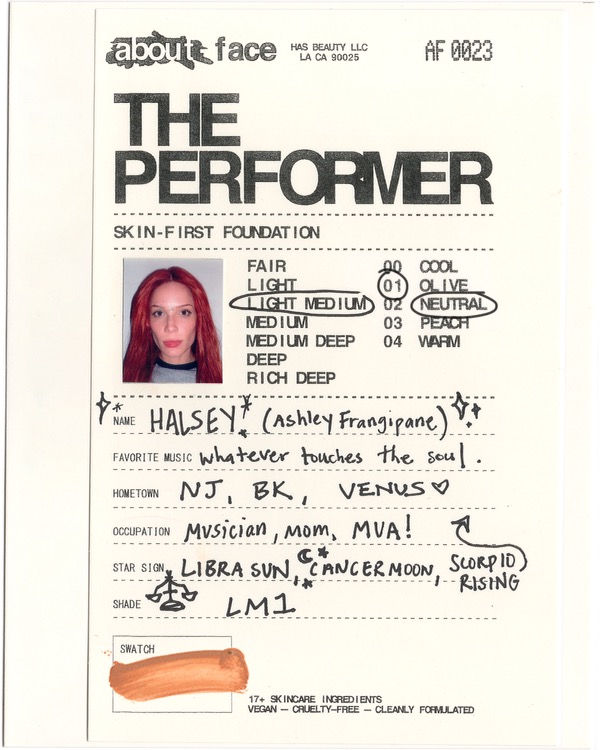 about face
HAS BEAUTY LLC
LA CA 90025
AF 0023
THE
PERFORMER
SKIN-FIRST FOUNDATION
FAIR 00 COOL
LIGHT 01 OLIVE
LIGHT MEDIUM 02 NEUTRAL
MEDIUM 03 PEACH
MEDIUM DEEP 04 WARM
DEEP
RICH DEEP
NAME HALSEY! (Ashley Frangipane)
FAVORITE MUSIC whatever touches the soul.
HOMETOWN NJ, BK, VENUS
OCCUPATION Musician, mom, MUA!
STAR SIGN LIBRA SUN, CANCER MOON, SCORPIO
RISING
SHADE LM1
SWATCH
17+ SKINCARE INGREDIENTS
VEGAN — CRUELTY-FREE — CLEANLY FORMULATED